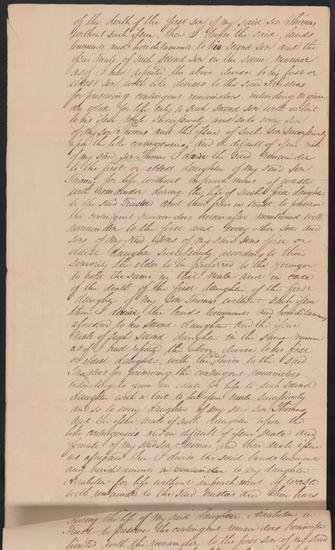 of the death of the first son of my said son Thomas
without such issue, then I devise the said lands
tenements and hereditaments to his second son and the
issue male of such second son in the same manner
as if I had repeated the above devise to his first or
eldest son with like devises to the said Trustees
for preserving contingent remainders intending to give
an estate for life only to such second son with a limit
to his issue male successively and so to every son
of my son Thomas and the issue of such son successively
upon the like contingencies, and in default of issue male
of my said son Thomas I devise the said remainder
to the first or eldest daughter of my said son
Thomas for life without impeachment of waste
with remainder during the life of such first daughter
to the said Trustees and their heirs in trust to preserve
the contingent remainders hereinafter mentioned with
remainder to the first and every other son and
sons of my said sons of my said sons first or
eldest daughter successively according to their
seniority the elder to be preferred to the younger
to hold the same in tail male and in case
of the death of the first daughter of the first
daughter of my son Thomas without such issue
then I devise the said tenements and hereditaments
aforesaid to his second daughter and the issue
male of such second daughter in the same manner
as if I had repeated the above devise to his first
or eldest daughter with the devise to the said
Trustees for preserving the contingent remainders
intending to give an estate for life to such second
daughter with a limit to her issue male successively
and so to every daughter of my said son Thomas
and the issue male of such daughter upon the
like contingencies and in default of issue male and
female of my said son Thomas
as aforesaid then I devise the said lands tenements
and hereditaments in remainder to my daughter
for life without impeachment of waste
with remainder to the said Trustees and their heirs
during the life of my said daughter in
trust to preserve the contingent remainders hereinafter
limited with the remainder to the first son of my said